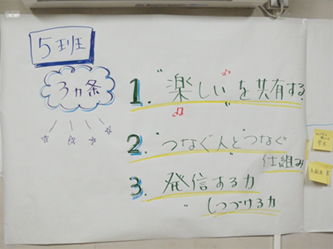 5班
3ヵ条
1. "楽しい"を共有する
2. "つなぐ人"と"つなぐ
仕組み"
3. 発信する力
しつづける力